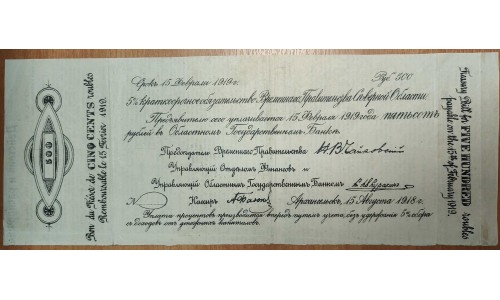 Bon du Trésor de CINQ CENTS roubles
Remboursable le 15 Février 1919.
500
Срокъ 15 Февраля 1919 г.
Руб. 500
5% краткосрочное обязательство Временнаго Правительства Северной Области
Предъявителю сего уплачивается 15 Февраля 1919 года пятьсотъ
рублей въ Областномъ Государственномъ Банкѣ.
Председатель Временнаго Правительства: Н. В. Чайковский
Управляющий Отделомъ Финансовъ и
Управляющий Областнымъ Государственнымъ Банкомъ
№
Кассиръ
Архангельскъ, 15 Августа 1918 г.
Уплата процентовъ производится впередъ путемъ учета, безъ удержания 5% сбора
съ доходовъ отъ денежныхъ капиталовъ.
Treasury Bill for FIVE HUNDRED roubles
payable on the 15th of February 1919.